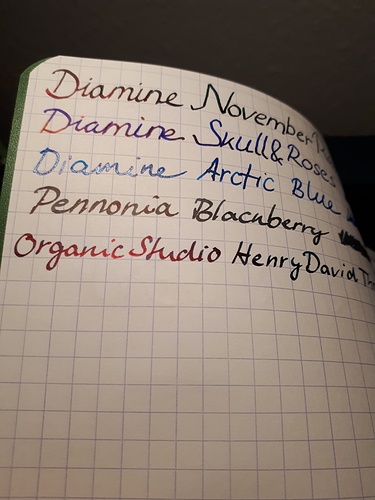 Diamine November
Diamine Skull&Roses
Diamine Arctic Blue
Pennonia Blacnberry
Organic Studio Henry David